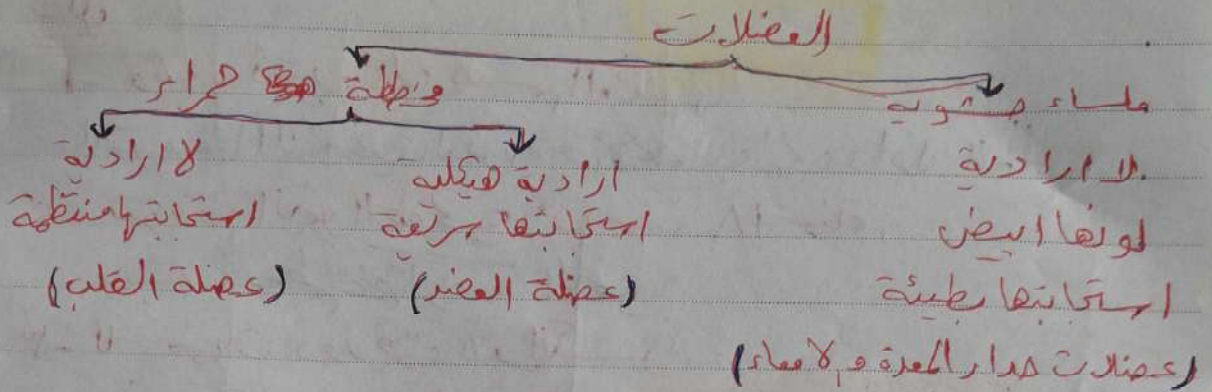 العضلات
ملساء حشوية
مخططة حمراء
لا ارادية
لونها ابيض
استجابتها بطيئة
(عضلات جدار المعدة و الامعاء)
ارادية هيكلية
استجابتها سريعة
(عضلة العضد)
لا ارادية
استجابتها منتظمة
(عضلة القلب)